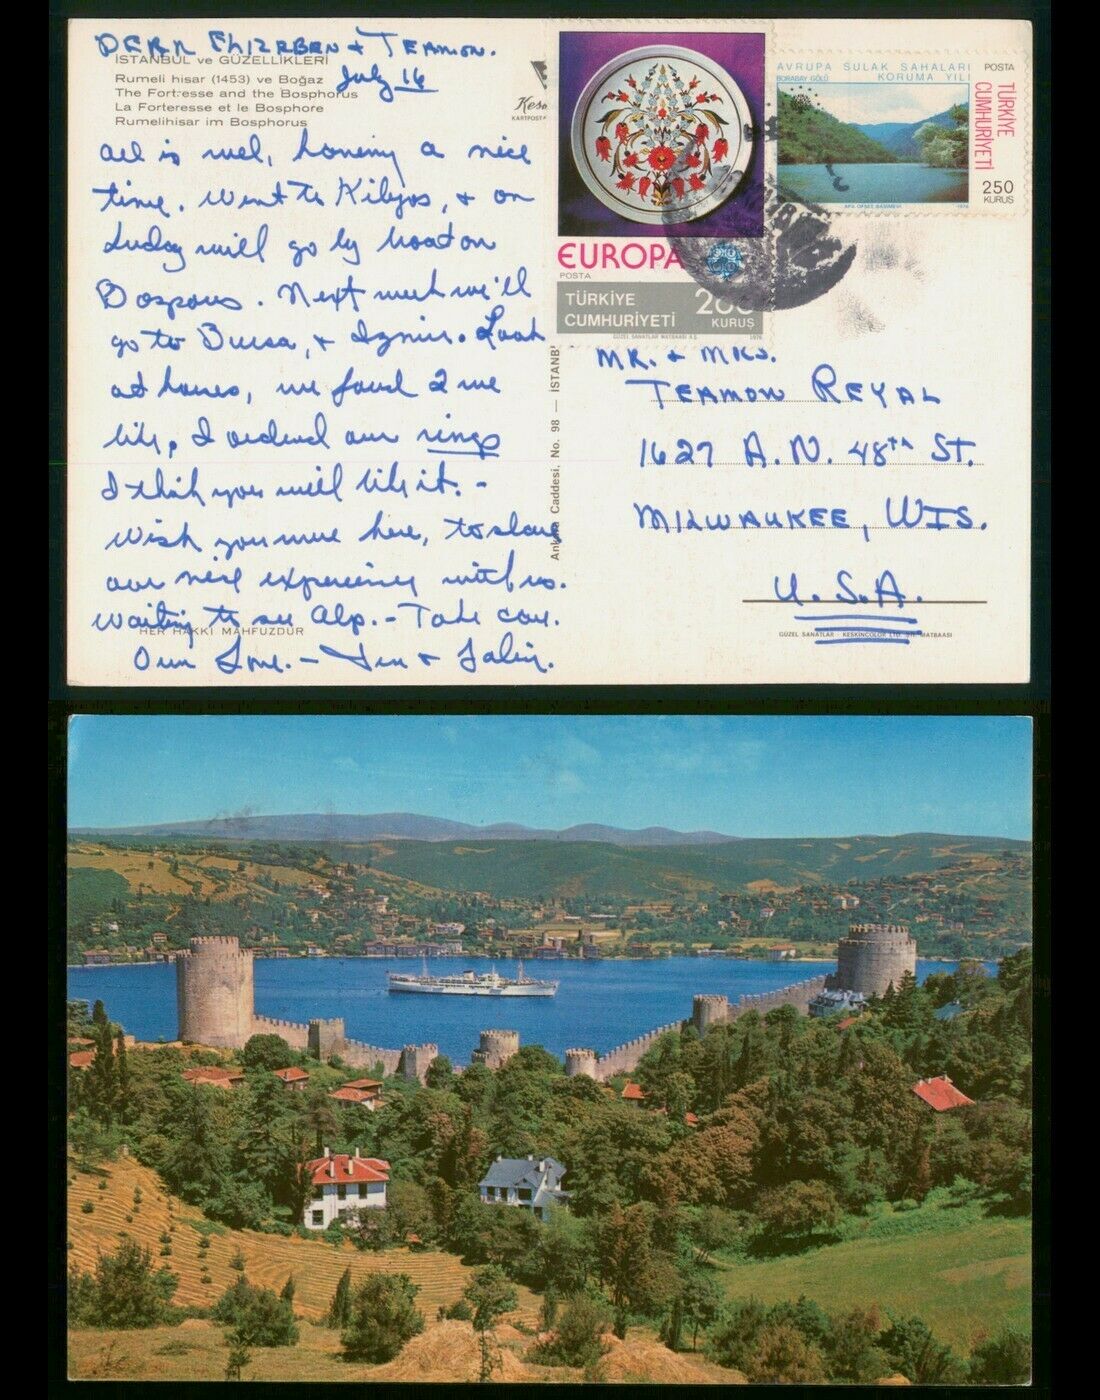 DEAR ELIZEBEN + TEAMON.
ISTANBUL ve GÜZELLİKLERİ
July 16
Rumeli hisar (1453) ve Boğaz
The Fortress and the Bosphorus
La Forteresse et le Bosphore
Rumelihisar im Bosphorus
all is well, having a nice
time. Went to Kilyos, & on
Sunday will go by boat on
Bosporus. Next week we'll
go to Bursa, & Izmir. Look
at homes, we found 2 we
like, I ordered our rings
I think you will like it. -
Wish you were here, to share
our nice experiences with us.
Waiting to see Alp. - Take care.
HER HAKKI MAHFUZDUR
Our Love. -
Kes
KARTPOST
Ankara Caddesi, No. 98 — İSTANB
EUROPA
POSTA
TÜRKİYE
CUMHURİYETİ
200
KURUŞ
GÜZEL SANATLAR MATBAASI A.Ş.
1976
AVRUPA SULAK SAHALARI
KORUMA YILI
BORABAY GÖLÜ
POSTA
TÜRKİYE
CUMHURİYETİ
250
KURUŞ
APA OFSET BASIMEVİ
1976
MR. & MRS.
TEAMON REYAL
1627 A. N. 48TH ST.
MILWAUKEE, WIS.
U.S.A.
GÜZEL SANATLAR - KESKINCOLOR LTD. ŞTİ. MATBAASI